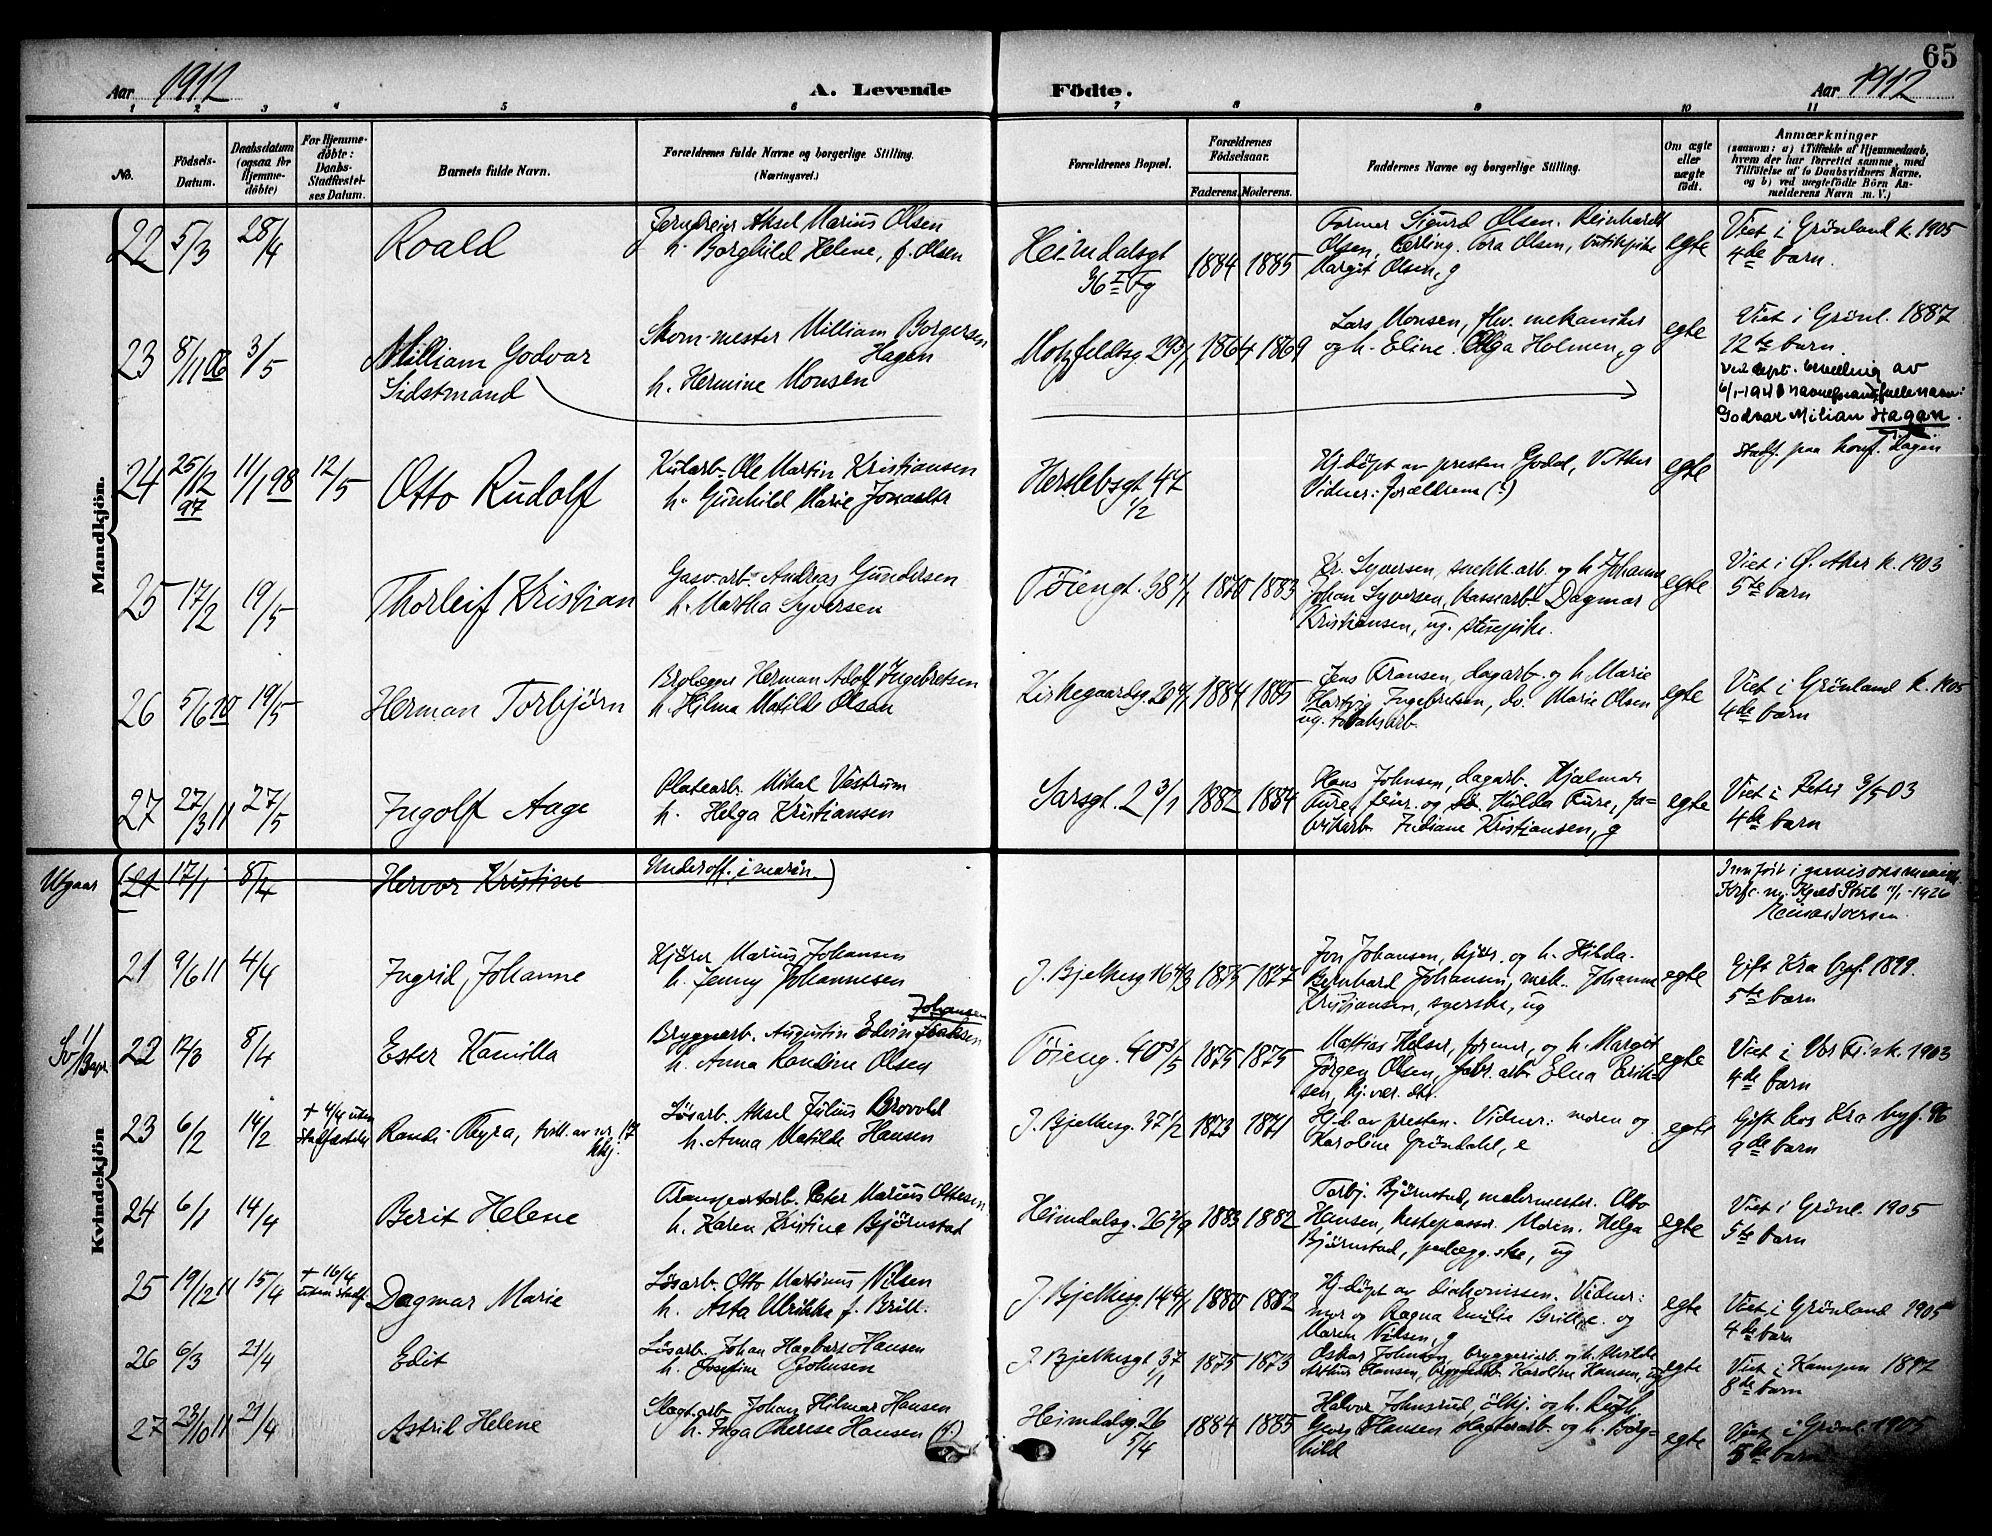 65
Aar 1912
A. Levende
Födte.
Aar 1912
1 2 3 4 5 6 7 8 9 10 11
No.
Födsels-
Datum.
Daabsdatum
(ogsaa for
Hjemme-
döbte)
For Hjemme-
døbte:
Daabs-
Stadfæstel-
ses Datum.
Barnets fulde Navn.
Forældrenes fulde Navne og borgerlige Stilling.
(Næringsvei.)
Forældrenes Bopæl.
Forældrenes
Födselsaar.
Faderens. Moderens.
Faddernes Navne og borgerlige Stilling.
Om ægte
eller
uægte
født.
Anmærkninger
(saasom: a) i Tilfælde af Hjemmedaab,
hvem der har forrettet samme, med
Tilföielse af to Daabsvidners Navne,
og b) ved uægtefödte Börn An-
melderens Navn m. V.)
Mandkjön.
22 5/3 28/4 Roald
Jerndreier Aksel Marius Olsen
h. Borghild Helene, f. Olsen
Heimdalsgt
36 I Fg
1884 1885
Former Sigurd Olsen. Reinhardt
Olsen, Erling. Tora Olsen, butikpike
Margit Olsen, g
egte
Viet i Grønland k. 1905
4de barn.
23 8/11 06 3/5 William Godvar
Sidstmand
Skom-mester William Borgersen
Hagen
h. Hermine Monsen
Motzfeldtsg. 29 1864 1869
Lars Monsen, mekaniker
og h. Eline. Olga Holmen, g
egte
Viet i Grønl. 1887
12te barn.
Ved dept. bevilling av
6/1-1940 navneforand, fulle navn:
Godvar Milian Hagan.
24 25/12 97 11/1 98 12/5 Otto Rudolf
Kularb. Ole Martin Kristiansen
h. Gunhild Marie
Herslebsgt 47
1/2
Hj.døpt av presten Godal, V. Aker
Vidner: forældrene (?)
egte
Stadf. paa konf. dagen
25 17/2 19/5 Thorleif Kristian
Gasv.arb. Andreas Gundersen
h. Martha Syversen
Tøiengt. 38 1880 1883
Kr. Syversen, snekk.arb. og h. Johanne
Johan Syversen, Dagmar
Kristiansen, ug. stuepike.
egte
Viet i Ø. Aker k. 1903
5te barn
26 5/6 10 19/5 Herman Torbjørn
Brolægger Herman Adolf Ingebretsen
h. Hilma Matilde Olsen
Kirkegaardsg. 20 1884 1885
Jens Fransen, dagarb. og h. Marie
Hartvig Ingebretsen, do. Marie Olsen
ug. tobaksarb.
egte
Viet i Grønland k. 1905
4de barn
27 27/3 11 27/5 Ingolf Aage
Platearb. Mikal Vestrum
h. Helga Kristiansen
Sarsgt. 2 3/1 1882 1884
Hans Johnsen, dagarb. Hjalmar
Fure, feier. og Hulda Fure, fa-
brikarb. Indiane Kristiansen, g
egte
Viet i Petri 3/5 03
4de barn
Utgaar (21 17/1 8/4 Hervor Kristine Underoff. i marin.)
Innført i garnisonsmenigh.
Kvindekjön
21 9/6 11 4/4 Ingrid Johanne
Kjører Marius Johansen
h. Jenny Johannesen
J. Bjelkesg. 16 4/3 1875 1877
Jon Johansen, kjør. og h. Hilda.
Bernhard Johansen, mek. Johanne
Kristiansen, syerske, ug
egte
Gift Kra byf. 1899.
5te barn
22 12/3 8/4 Ester Kamilla
Bryggearb. Augustin Edvin Johansen
h. Anna Randine Olsen
Tøieng. 40 3/5 1875 1875
Mattias Helser, former, og h. Margit
Jørgen Olsen, fabr. arb. Elna Erik-
sen,
egte
Viet i Vor Fr. k. 1903
4de barn
23 6/2 14/2 + 4/4 uten
stadfæstelse
Randi Thyra, tvill. av nr. 17
Løsarb. Aksel Julius Brovold
h. Anna Matilde Hansen
J. Bjelkesg. 37 1/2 1873 1871
Hj.d av presten. Vidner: moren og
Karoline Grøndahl, e
egte
Gift hos Kra byf. 96
9de barn
24 6/1 14/4 Berit Helene
Transportarb. Peter Marius Ottesen
h. Karen Kristine Bjørnstad
Heimdalsg. 26 2/9 1883 1882
Torbj. Bjørnstad, malermester. Otto
Hansen, hestepasser. Moren. Helga
Bjørnstad, ug
egte
Viet i Grønl. 1905
5te barn
25 19/12 11 15/4 + 16/4
uten stadf.
Dagmar Marie
Løsarb. Otto Martinus Nilsen
h. Asta Ulrikke f. Brill.
J. Bjelkesg. 14 4/1 1880 1882
Hj.døpt av diakonissen. Vidner:
mor og Ragna Emilie og
Maren Nilsen, g
egte
Viet i Grønland 1905
4de barn
26 6/3 21/4 Edit
Løsarb. Johan Hagbart Hansen
h. Josefine Johnsen
J. Bjelkesgt 37
1/1
1875 1873
Oskar Johnsen, bryggeriarb. og h. Alvilde
Arthur Hansen, Karoline Hansen, ug
egte
Viet i Kampen 1897
8de barn
27 23/10 11 21/4 Astrid Helene
Slagt.arb. Johan Hilmar Hansen
h. Inga Therese Hansen (?)
Heimdalsg. 26
5/4
1884 1885
Halvor Johnsrud, ølkj. og h. Ruth,
Georg Hansen slagteriarb. og h. Borg-
hild
egte
Viet i Grønl. 1905
5te barn